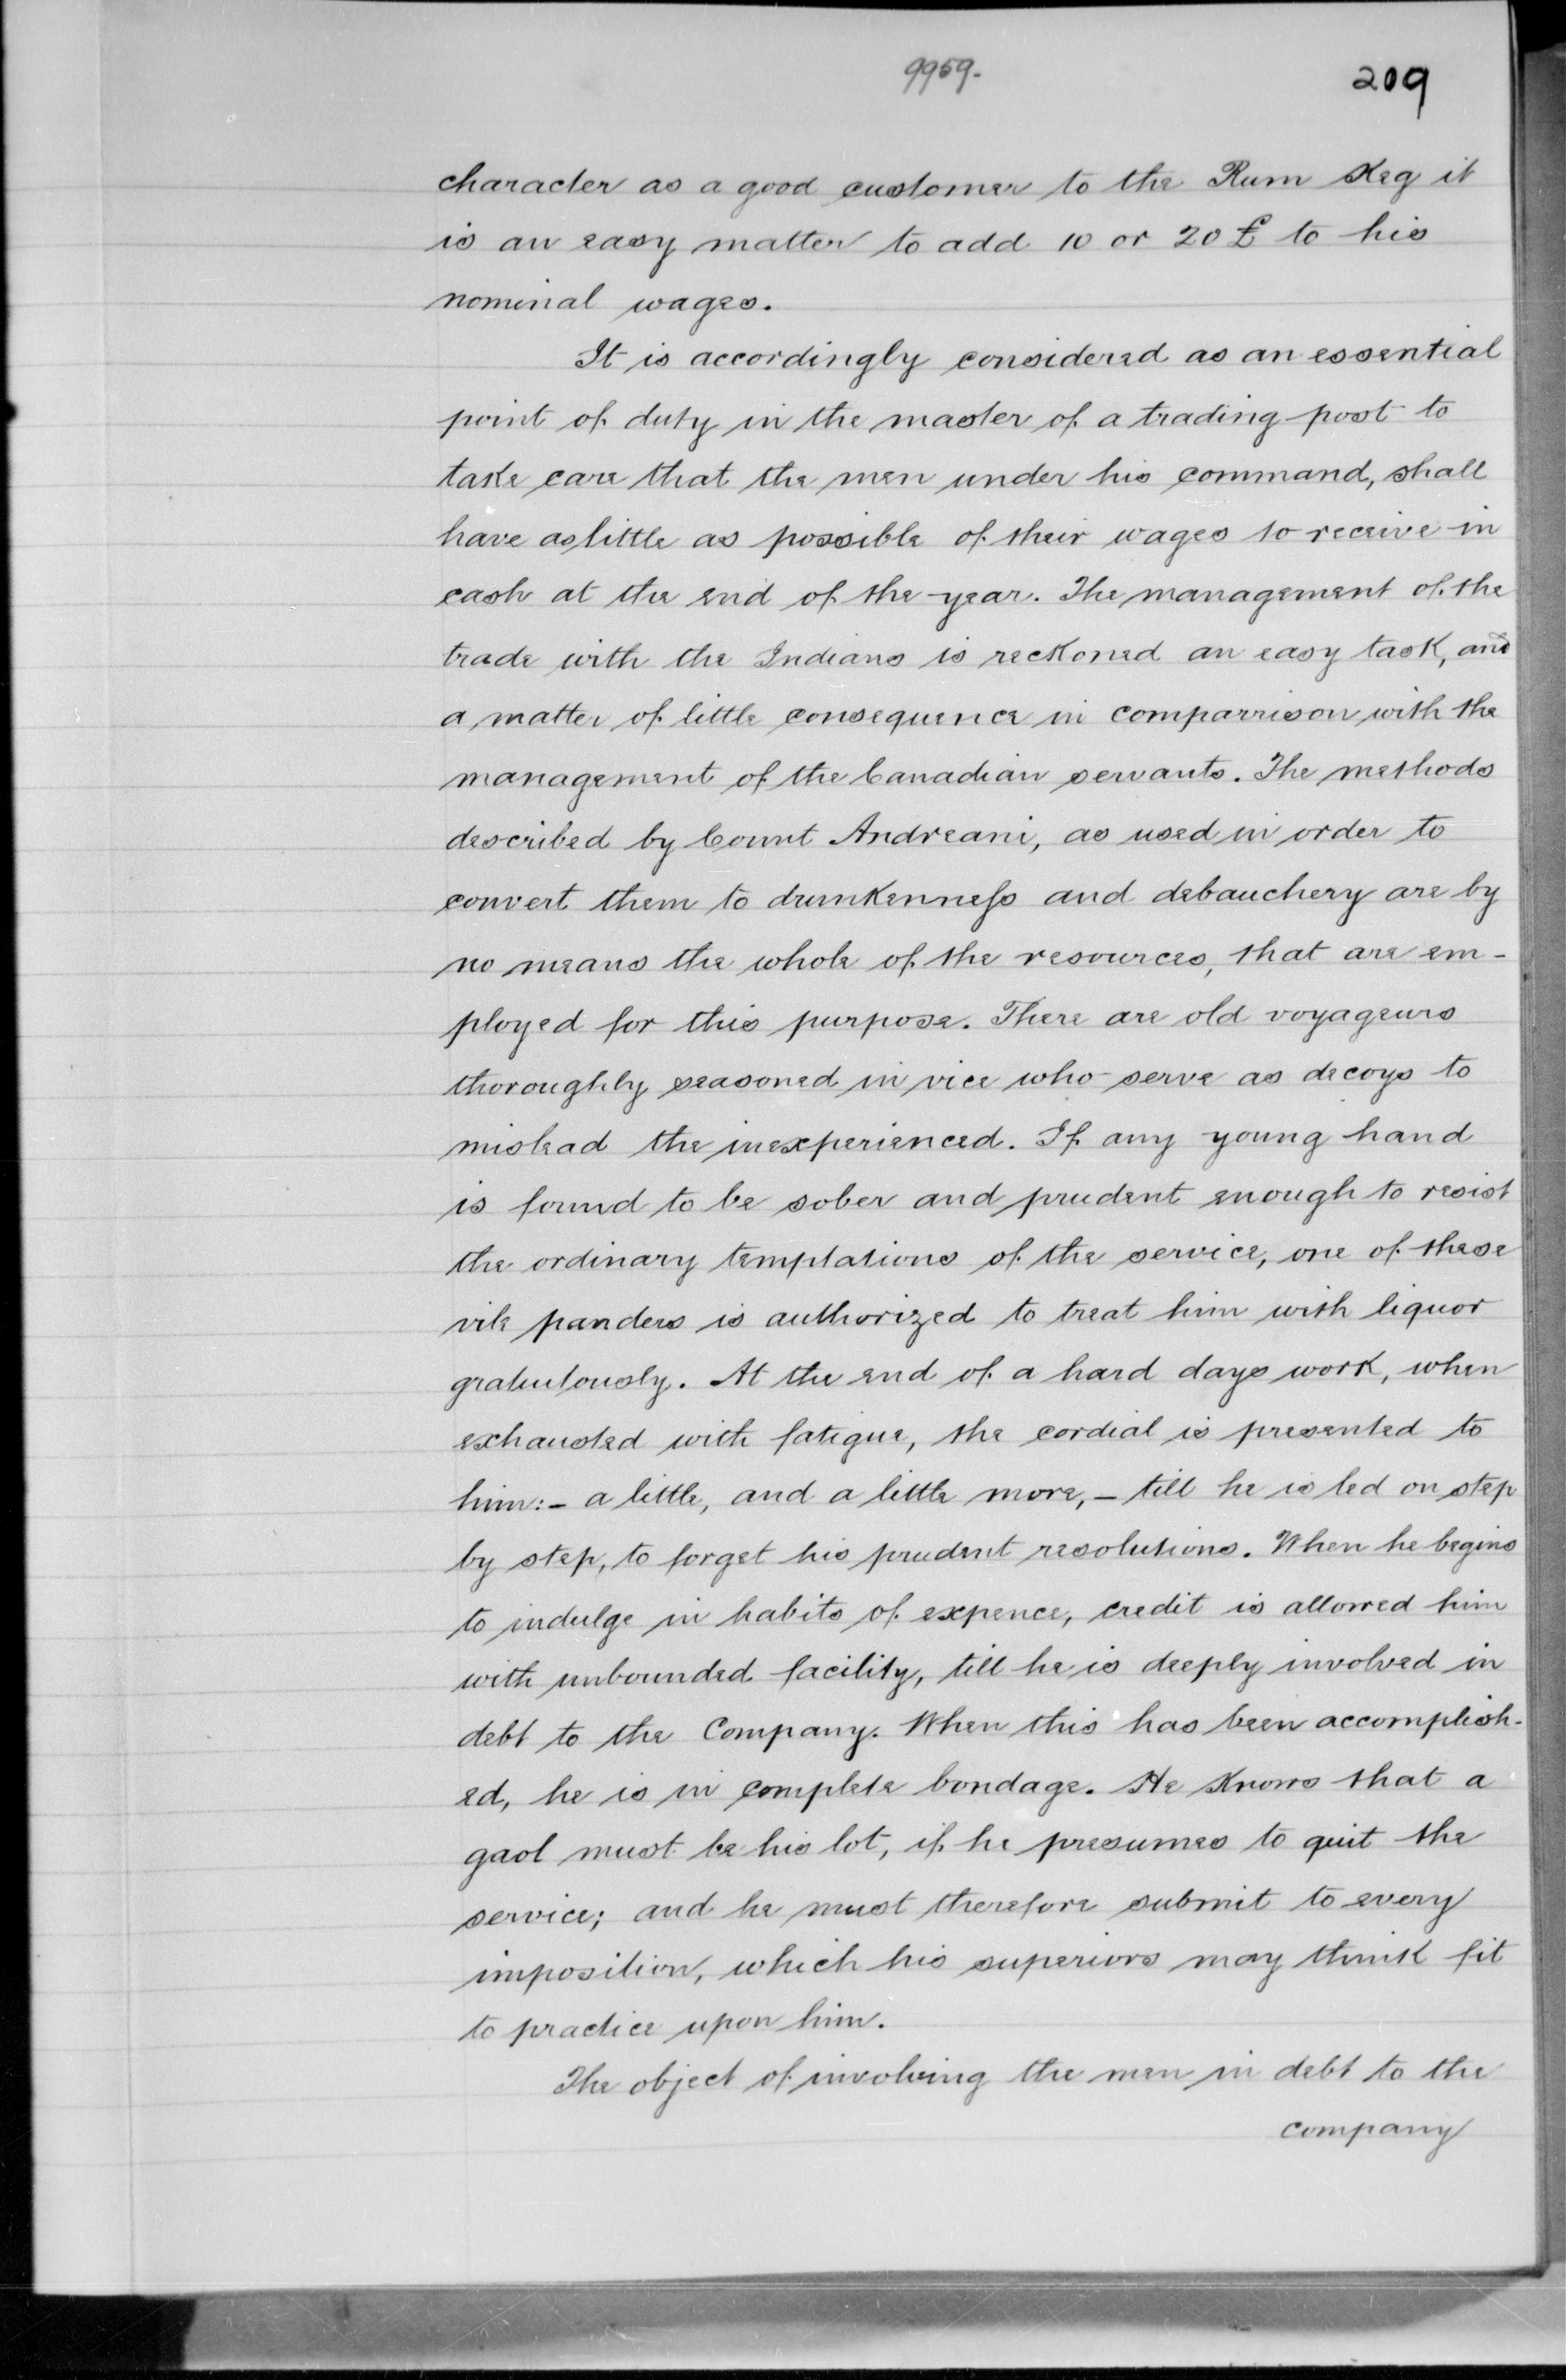 9959.
209
character as a good customer to the Rum Keg it
is an easy matter to add 10 or 20 £ to his
nominal wages.
It is accordingly considered as an essential
point of duty in the master of a trading post to
take care that the men under his command, shall
have as little as possible of their wages to receive in
cash at the end of the year. The management of the
trade with the Indians is reckoned an easy task, and
a matter of little consequence in comparrison with the
management of the Canadian servants. The methods
described by Count Andreani, as used in order to
convert them to drunkenness and debauchery are by
no means the whole of the resources, that are em-
ployed for this purpose. There are old voyageurs
thoroughly seasoned in vice who serve as decoys to
mislead the inexperienced. If any young hand
is found to be sober and prudent enough to resist
the ordinary temptations of the service, one of these
vile panders is authorized to treat him with liquor
gratuitously. At the end of a hard days work, when
exhausted with fatigue, the cordial is presented to
him:- a little, and a little more, - till he is led on step
by step, to forget his prudent resolutions. When he begins
to indulge in habits of expence, credit is allowed him
with unbounded facility, till he is deeply involved in
debt to the Company. When this has been accomplish-
ed, he is in complete bondage. He knows that a
gaol must be his lot, if he presumes to quit the
service; and he must therefore submit to every
imposition, which his superiors may think fit
to practice upon him.
The object of involving the men in debt to the
company